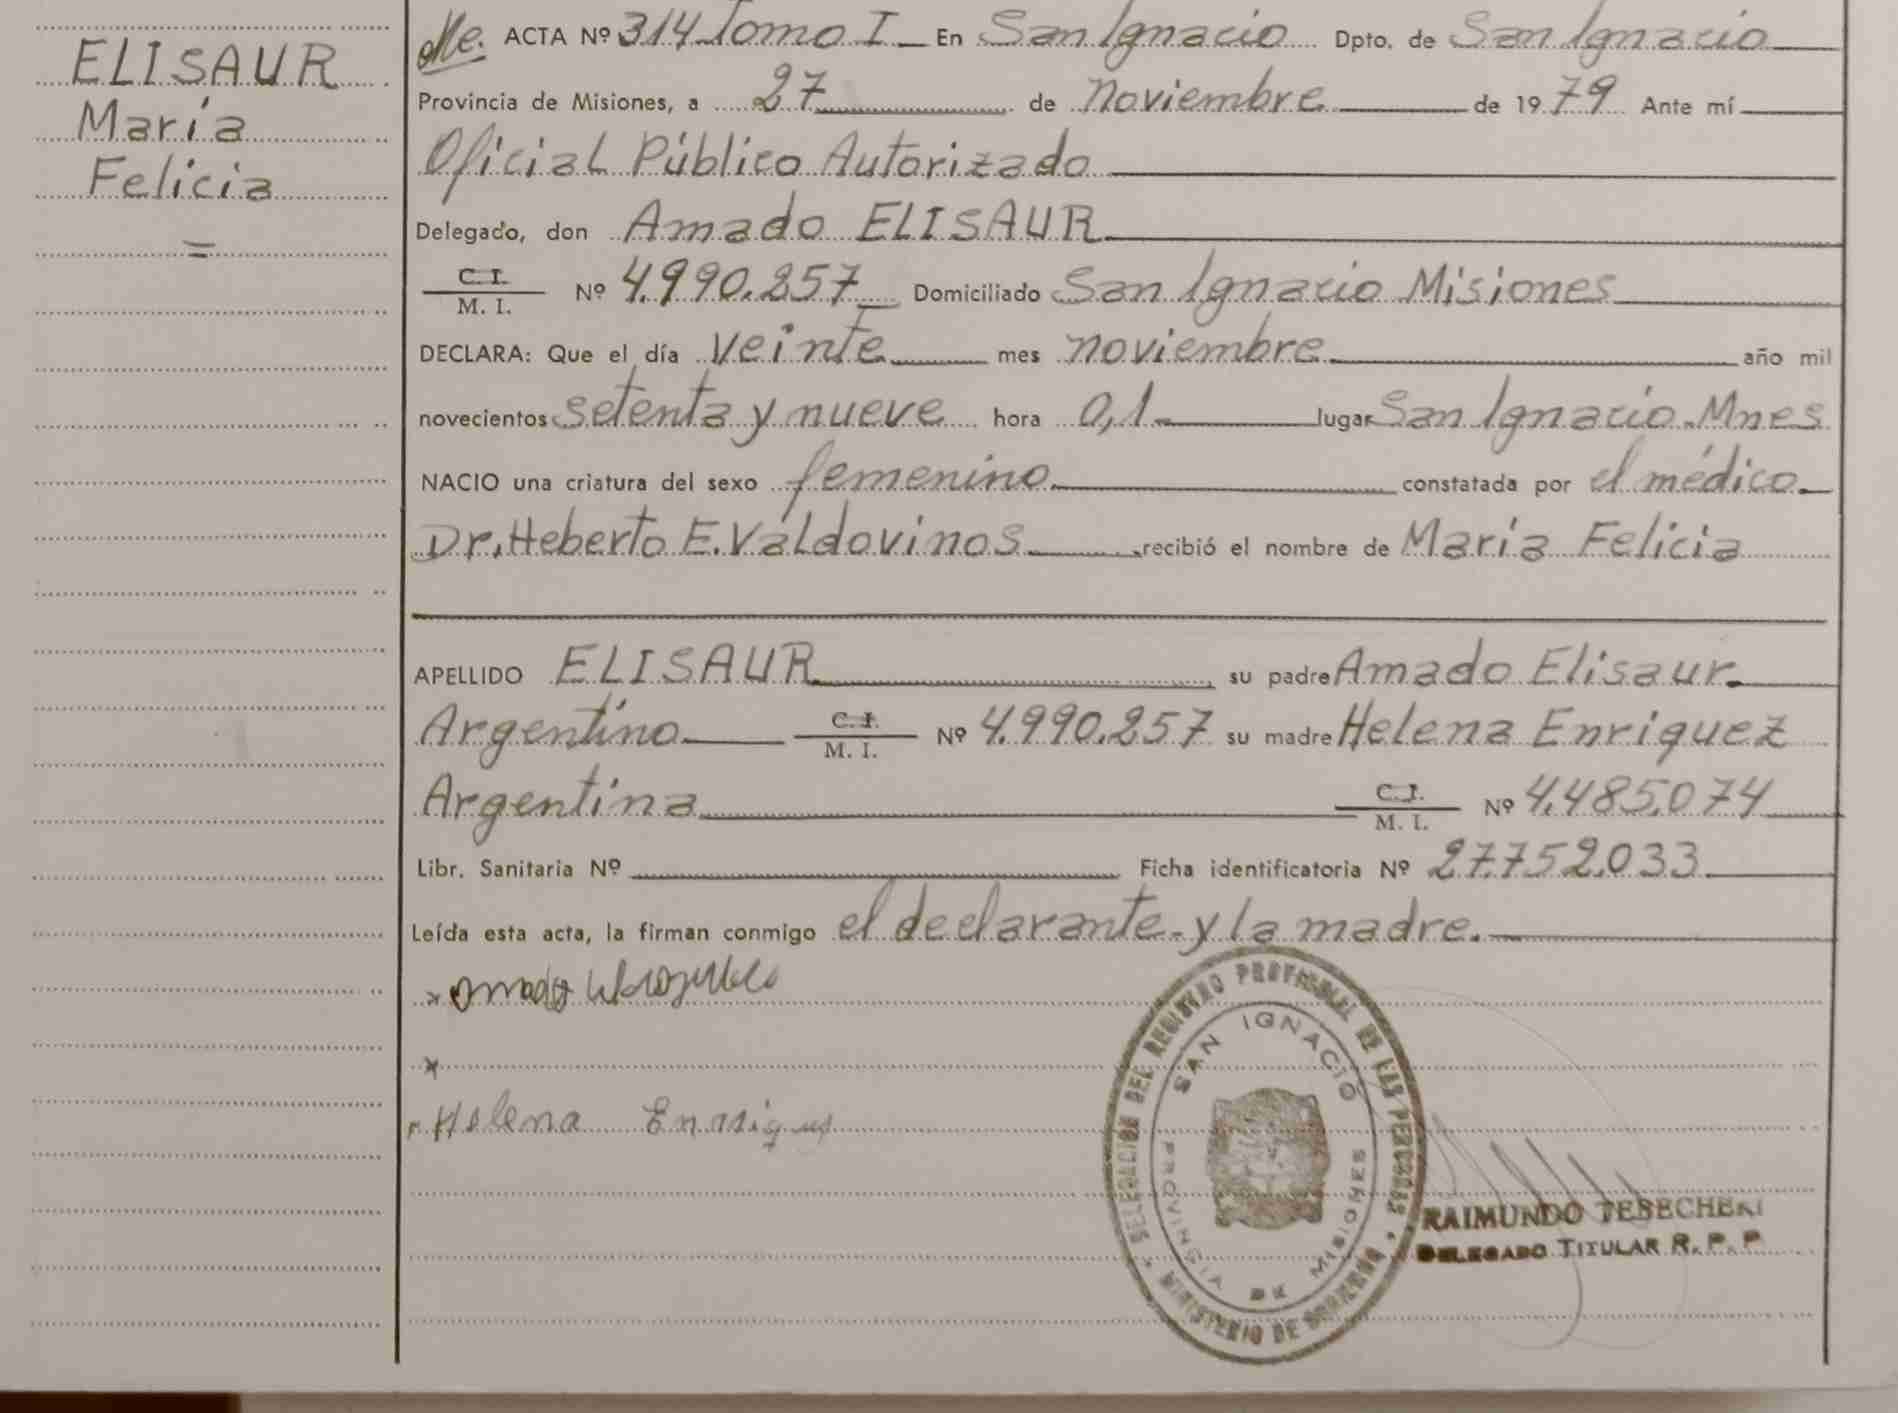 ELISAUR
María
Felicia
=
ACTA Nº 314 Tomo I En San Ignacio Dpto. de San Ignacio
Provincia de Misiones, a 27 de noviembre de 1979 Ante mí
Oficial Público Autorizado
Delegado, don Amado ELISAUR
C. I.
M. I.
Nº 4.990.257 Domiciliado San Ignacio Misiones
DECLARA: Que el día veinte mes noviembre año mil
novecientos setenta y nueve hora 0,1 lugar San Ignacio. Mnes
NACIO una criatura del sexo femenino constatada por el médico
Dr. Heberto E. Valdovinos recibió el nombre de María Felicia
APELLIDO ELISAUR su padre Amado Elisaur.
Argentino C. I. M. I. Nº 4.990.257 su madre Helena Enriquez
Argentina C. I. M. I. Nº 4.485.074
Libr. Sanitaria Nº Ficha identificatoria Nº 27.752.033
Leída esta acta, la firman conmigo el declarante y la madre.
Helena
DELEGACION DEL REGISTRO PROVINCIAL DE LAS PERSONAS
SAN IGNACIO
PROVINCIA DE MISIONES
MINISTERIO DE GOBIERNO
RAIMUNDO
DELEGADO TITULAR R. P. P.